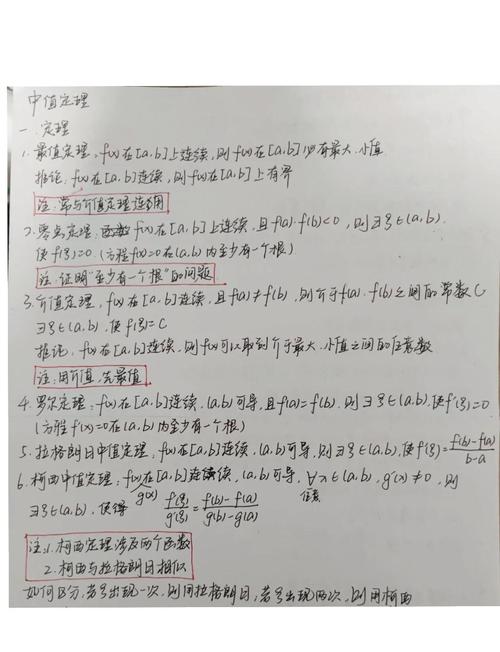 中值定理
一.定理
1.最值定理,f(x)在[a,b]上连续,则f(x)在[a,b]必有最大.小值
推论,f(x)在[a,b]连续,则f(x)在[a,b]上有界
注:常与介值定理连用
2.零点定理:函数f(x)在[a,b]上连续,且f(a)·f(b)<0,则∃ξ∈(a,b).
使f(ξ)=0.(方程f(x)=0在(a,b)内至少有一个根)
注:证明“至少有一个根”的问题
3.介值定理,f(x)在[a,b]连续,且f(a)≠f(b),则介于f(a).f(b)之间的常数C
∃ξ∈(a,b),使f(ξ)=C
推论:f(x)在[a,b]连续,则f(x)可以取到介于最大.小值之间的任意数
注:用介值,先最值
4.罗尔定理:f(x)在[a,b]连续,(a,b)可导,且f(a)=f(b).则∃ξ∈(a,b),使f'(ξ)=0
(方程f'(x)=0在(a,b)内至少有一个根)
5.拉格朗日中值定理,f(x)在[a,b]连续,(a,b)可导,则∃ξ∈(a,b),使f'(ξ)=f(b)-f(a)/b-a
6.柯西中值定理:f(x)在[a,b]连续,(a,b)可导,∀x∈(a,b),g'(x)≠0,则
g(x) 任意
∃ξ∈(a,b),使得 f'(ξ)/g'(ξ)=f(b)-f(a)/g(b)-g(a)
注:1.柯西定理涉及两个函数
2.柯西与拉格朗日相似
如何区分:若ξ出现一次,则用拉格朗日;若ξ出现两次,则用柯西